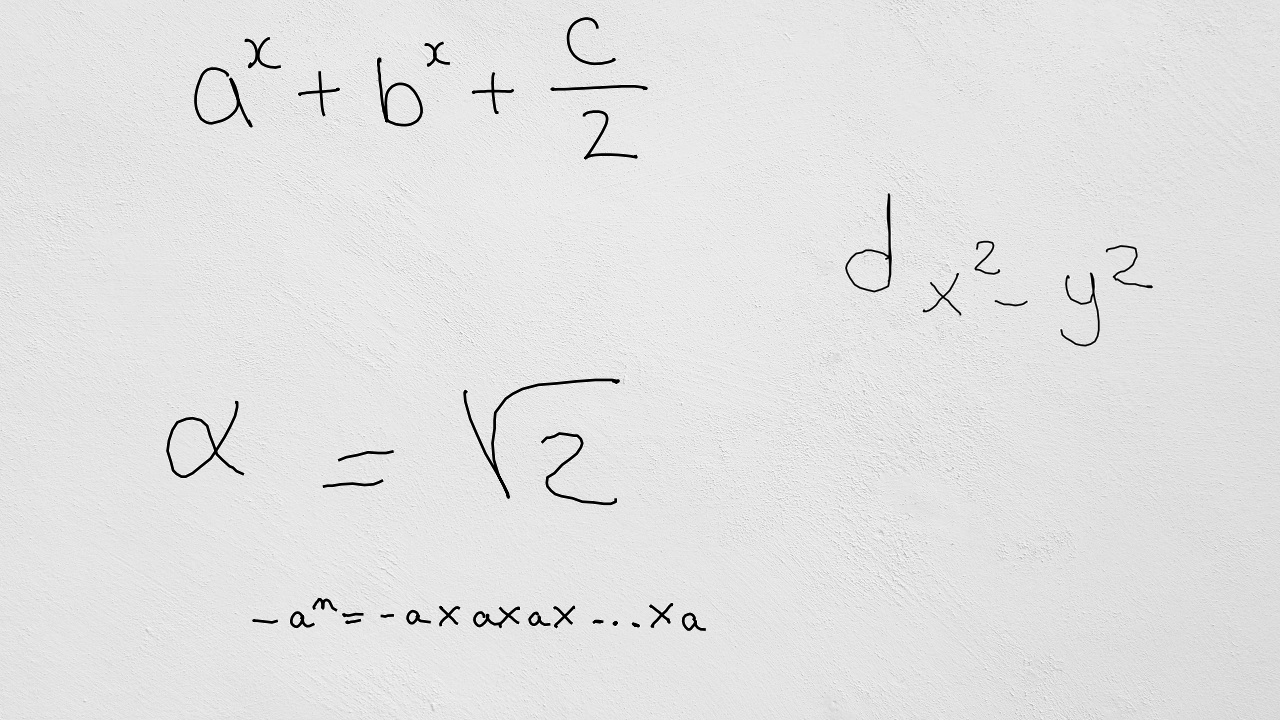 a^x + b^x + c/2
d_{x^2 - y^2}
α = √2
-a^n = -a×a×a×...×a